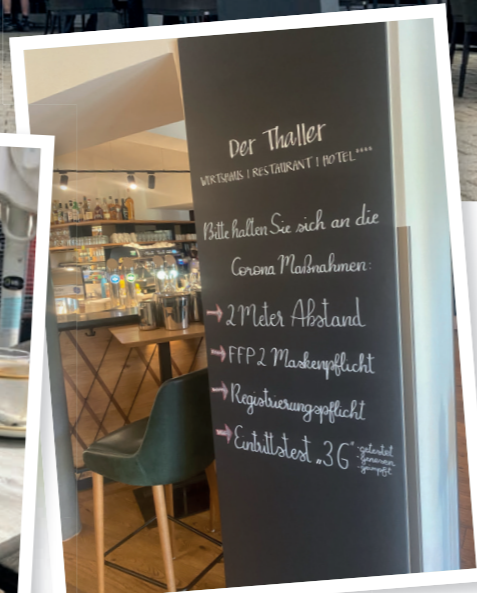 Der Thaller
WIRTSHAUS | RESTAURANT | HOTEL****
Bitte halten Sie sich an die
Corona Maßnahmen:
→ 2 Meter Abstand
→ FFP2 Maskenpflicht
→ Registrierungspflicht
→ Eintrittstest „3G“ -getestet
-genesen
-geimpft